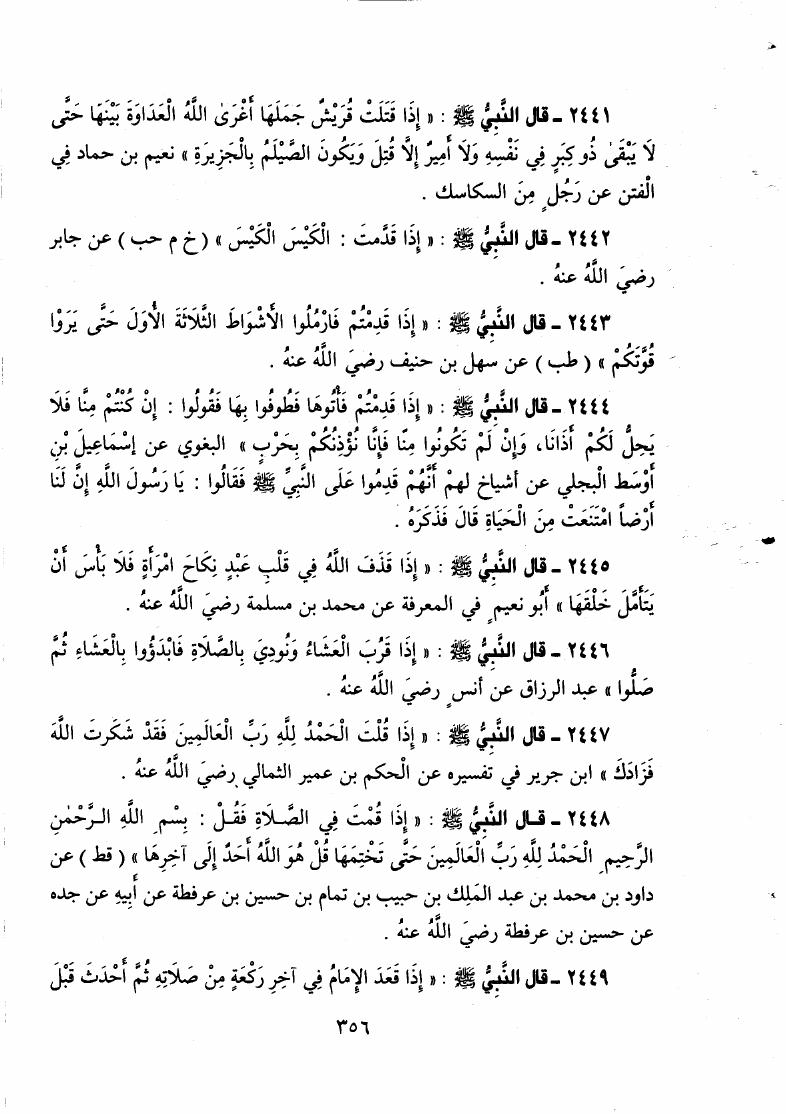 ٢٤٤١ ـ قال النَّبِيُّ ﷺ : « إِذَا قَتَلَتْ قُرَيْشٌ جَمَلَهَا أَغْرَىٰ اللَّهُ الْعَدَاوَةَ بَيْنَهَا حَتَّى
لَا يَبْقَىٰ ذُو كِبَرٍ فِي نَفْسِهِ وَلَا أَمِيرٌ إِلَّا قُتِلَ وَيَكُونَ الصَّيْلَمُ بِالْجَزِيرَةِ » نعيم بن حماد فِي
الْفتن عن رَجُلٍ مِنَ السكاسك .
٢٤٤٢ ـ قال النَّبِيُّ ﷺ : « إِذَا قَدَّمتَ : الْكَيْسَ الْكَيْسَ » ( خ م حب ) عن جابر
رضيَ اللَّهُ عنهُ .
٢٤٤٣ ـ قال النَّبِيُّ ﷺ : « إِذَا قَدِمْتُمْ فَارْمُلُوا الأَشْوَاطَ الثَّلَاثَةَ الأُوَلَ حَتَّى يَرَوْا
قُوَّتَكُمْ » ( طب ) عن سهل بن حنيف رضيَ اللَّهُ عنهُ .
٢٤٤٤ ـ قال النَّبِيُّ ﷺ : « إِذَا قَدِمْتُمْ فَأْتُوهَا فَطُوفُوا بِهَا فَقُولُوا : إِنْ كُنْتُمْ مِنَّا فَلَا
يَحِلُّ لَكُمْ أَذَانَا، وَإِنْ لَمْ تَكُونُوا مِنَّا فَإِنَّا نُؤْذِنُكُمْ بِحَرْبٍ » البغوي عن إِسْمَاعِيلَ بْنِ
أَوْسَط الْبجلي عن أشياخ لهمْ أَنَّهُمْ قَدِمُوا عَلَى النَّبِيِّ ﷺ فَقَالُوا : يَا رَسُولَ اللَّهِ إِنَّ لَنَا
أَرْضاً امْتَنَعَتْ مِنَ الْحَيَاةِ قَالَ فَذَكَرَهُ .
٢٤٤٥ ـ قال النَّبِيُّ ﷺ : « إِذَا قَذَفَ اللَّهُ فِي قَلْبِ عَبْدٍ نِكَاحَ امْرَأَةٍ فَلَا بَأْسَ أَنْ
يَتَأَمَّلَ خَلْقَهَا » أَبُو نعيمٍ في المعرفة عن محمد بن مسلمة رضيَ اللَّهُ عنهُ .
٢٤٤٦ ـ قال النَّبِيُّ ﷺ : « إِذَا قَرُبَ الْعَشَاءُ وَنُودِيَ بِالصَّلَاةِ فَابْدَؤُوا بِالْعَشَاءِ ثُمَّ
صَلُّوا » عبد الرزاق عن أنسٍ رضيَ اللَّهُ عنهُ .
٢٤٤٧ ـ قال النَّبِيُّ ﷺ : « إِذَا قُلْتَ الْحَمْدُ لِلَّهِ رَبِّ الْعَالَمِينَ فَقَدْ شَكَرتَ اللَّهَ
فَزَادَكَ » ابن جرير في تفسيره عن الْحكم بن عمير الثمالي رضيَ اللَّهُ عنهُ .
٢٤٤٨ ـ قال النَّبِيُّ ﷺ : « إِذَا قُمْتَ فِي الصَّلَاةِ فَقُلْ : بِسْمِ اللَّهِ الرَّحْمٰنِ
الرَّحِيمِ الْحَمْدُ لِلَّهِ رَبِّ الْعَالَمِينَ حَتَّى تَخْتِمَهَا قُلْ هُوَ اللَّهُ أَحَدٌ إِلَى آخِرِهَا » ( قط ) عن
داود بن محمد بن عبد الملِك بن حبيب بن تمام بن حسين بن عرفطة عن أَبِيهِ عن جده
عن حسين بن عرفطة رضيَ اللَّهُ عنهُ .
٢٤٤٩ ـ قال النَّبِيُّ ﷺ : « إِذَا قَعَدَ الإِمَامُ فِي آخِرِ رَكْعَةٍ مِنْ صَلَاتِهِ ثُمَّ أَحْدَثَ قَبْلَ
٣٥٦